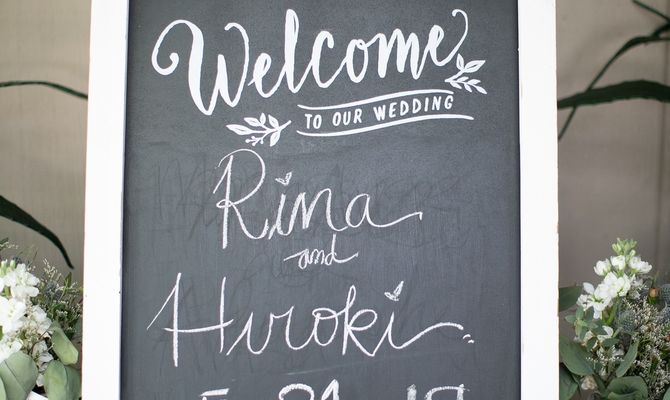 Welcome
TO OUR WEDDING
Rina
and
Hiroki